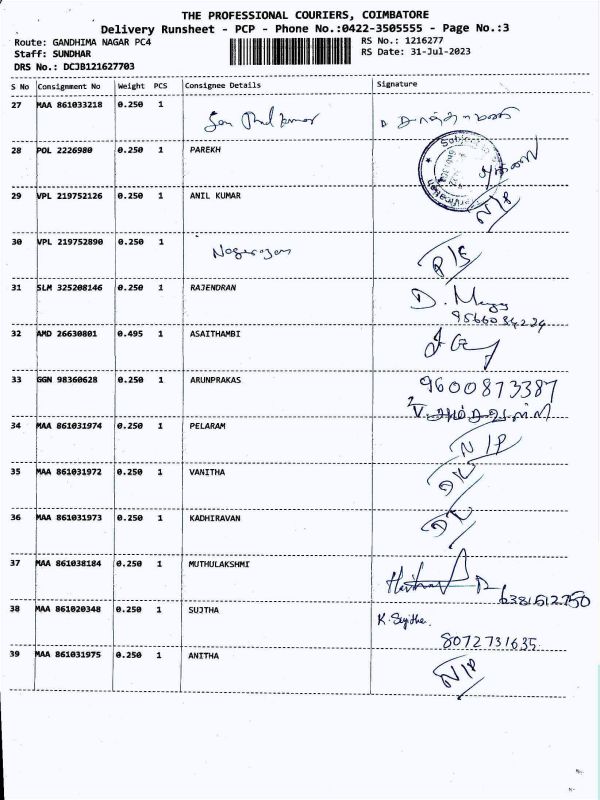 THE PROFESSIONAL COURIERS, COIMBATORE
Delivery Runsheet - PCP - Phone No.:0422-3505555 - Page No.:3
Route: GANDHIMA NAGAR PC4 RS No.: 1216277
Staff: SUNDHAR RS Date: 31-Jul-2023
DRS No.: DCJB121627703
S No Consignment No Weight PCS Consignee Details Signature
27 MAA 861033218 0.250 1
28 POL 2226980 0.250 1 PAREKH
Subject to
29 VPL 219752126 0.250 1 ANIL KUMAR N/P
30 VPL 219752890 0.250 1 Nagarajan P/S
31 SLM 325208146 0.250 1 RAJENDRAN D.
32 AMD 26630801 0.495 1 ASAITHAMBI
33 GGN 98360628 0.250 1 ARUNPRAKAS 9600873387
34 MAA 861031974 0.250 1 PELARAM N/P
35 MAA 861031972 0.250 1 VANITHA DL
36 MAA 861031973 0.250 1 KADHIRAVAN DL
37 MAA 861038184 0.250 1 MUTHULAKSHMI
6381612750
38 MAA 861020348 0.250 1 SUJTHA K. Sujitha.
8072731635
39 MAA 861031975 0.250 1 ANITHA N/P